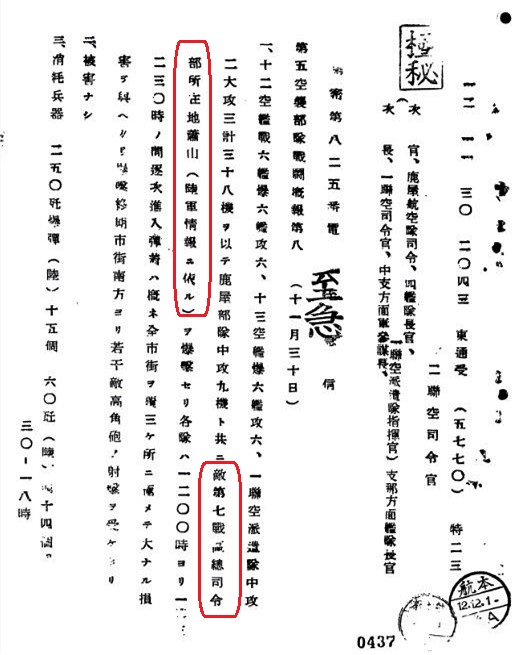 極秘
一二 一一 三〇 二〇四三 東通受（五七七〇） 特二三
二聯空司令官
次官、鹿屋航空隊司令、四艦隊長官、
一聯空派遣隊指揮官）支那方面艦隊長官
次長、一聯空司令官、中支方面軍參謀長、
密第八二五番電
至急 信
第五空襲部隊戰鬪概報第八（十一月三十日）
一、十二空艦戰六艦爆六艦攻六、十三空艦爆六艦攻六、一聯空派遣隊中攻
二大攻三計三十八機ヲ以テ鹿屋部隊中攻九機ト共ニ敵第七戰區總司令
部所在地蕭山（陸軍情報ニ依ル）ヲ爆擊セリ各隊ハ一二〇〇時ヨリ一
二三〇時ノ間逐次進入彈着ハ概ネ全市街ヲ覆三ケ所ニ メテ大ナル損
害ヲ與ヘ 擊終期市街南方ヨリ若干敵高角砲ノ射擊ヲ受ケ
二、被害ナシ
三、消耗兵器 二五〇瓩爆彈（陸）十五個 六〇瓩（陸） 十四個
三〇－一八時
航本
12.12.1
0437